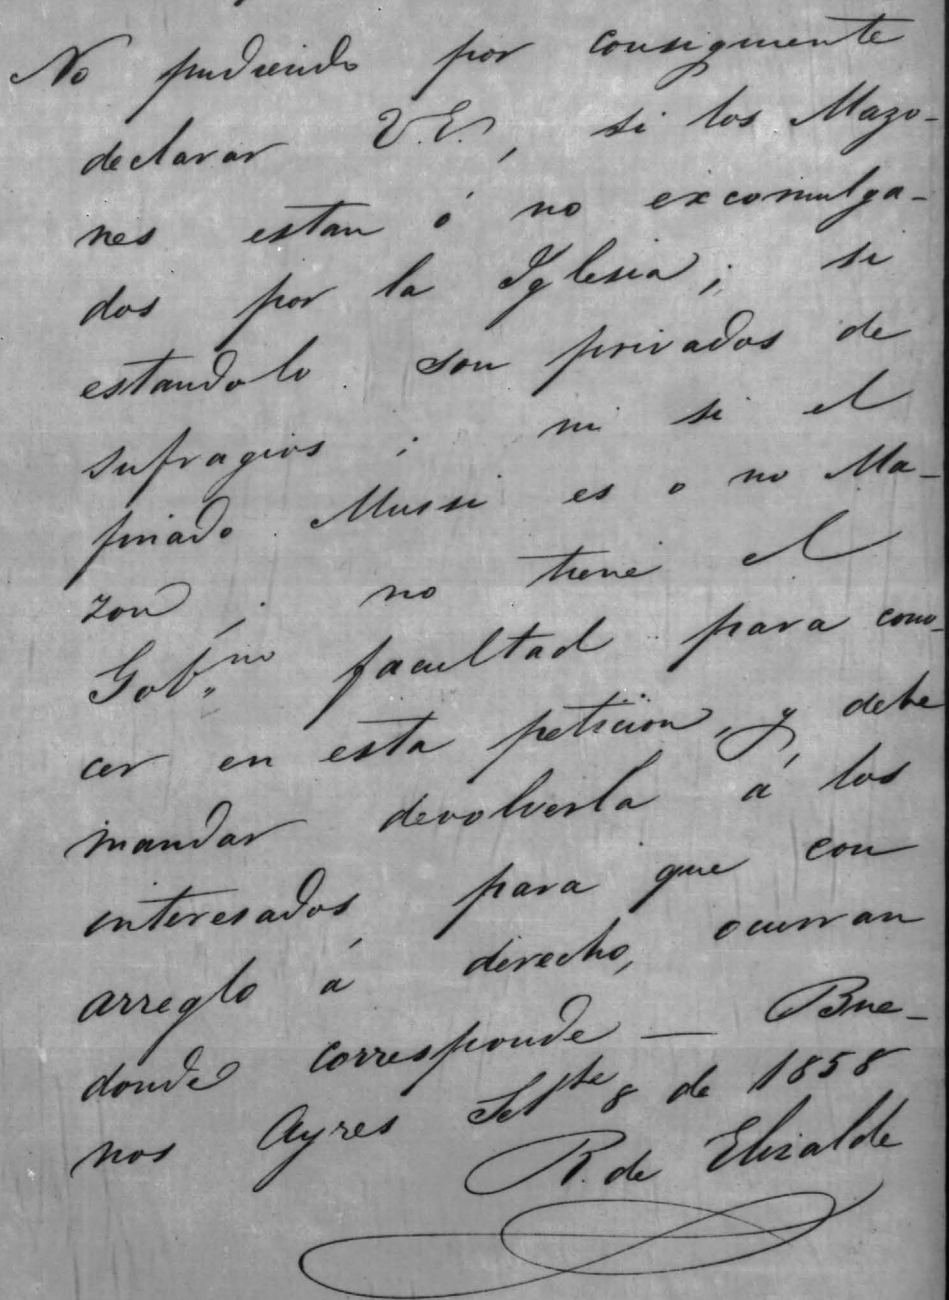 No pudiendo por consiguiente
declarar V.E., si los Mazo-
nes estan ó no excomulga-
dos por la Iglesia; si
estandolo son privados de
sufragios; ni si el
finado Mussi es o no Ma-
zon; no tiene el
Gob.no facultad para cono-
cer en esta peticion, y debe
mandar devolverla á los
interesados para que con
arreglo á derecho, ocurran
donde corresponde — Bue-
nos Ayres Set.bre 8 de 1858
R. de Elizalde